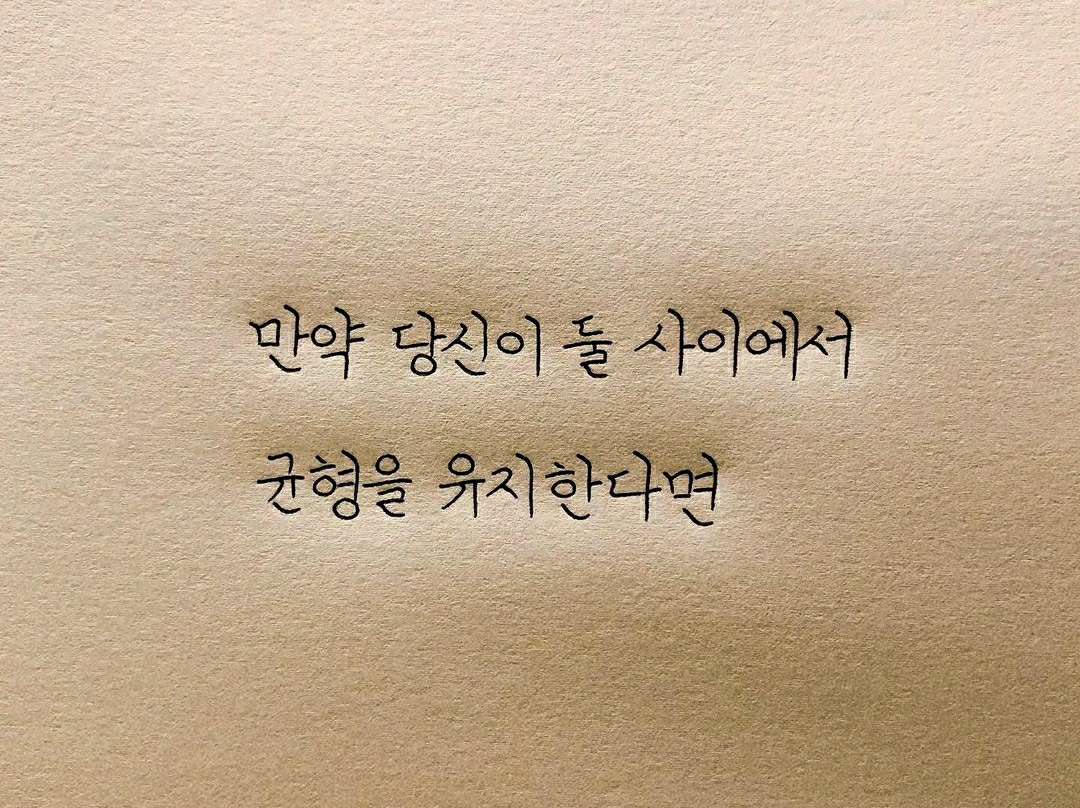 만약 당신이 둘 사이에서
균형을 유지한다면